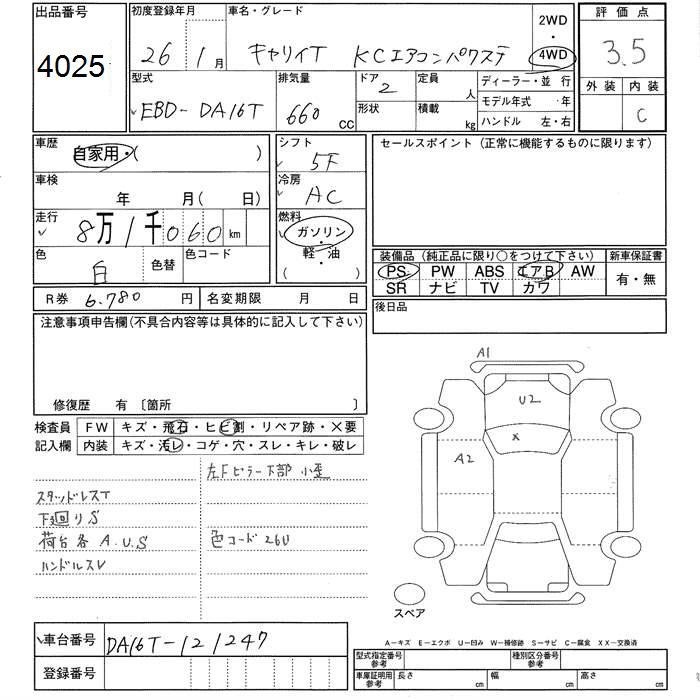 出品番号
4025
初度登録年月
26年1月
車名・グレード
キャリイT KCエアコンパワステ
2WD
・
4WD
評価点
3.5
外装 内装
C
型式
EBD-DA16T
排気量
660 CC
ドア 2
形状
定員 人
積載 kg
ディーラー・並行
モデル年式 ・ 年
ハンドル 左・右
車歴
自家用・( )
車検
年 月( 日)
走行
8万1千060km
色
白
色替
色コード
シフト
5F
冷房
AC
燃料
ガソリン
・
軽・油
( )
セールスポイント (正常に機能するものに限ります)
装備品 (純正品に限り○をつけて下さい)
PS PW ABS エアB AW
SR ナビ TV カワ
新車保証書
有・無
R券 6.780円
名変期限 月 日
後日品
注意事項申告欄(不具合内容等は具体的に記入して下さい)
修復歴 有 〔箇所 〕
検査員
記入欄
FW キズ・飛石・ヒビ割・リペア跡・X要
内装 キズ・汚レ・コゲ・穴・スレ・キレ・破レ
左Fピラー下部 小歪
スタッドレスT
下回りS
荷台各 A.U.S
ハンドルスレ
色コード 26U
A1
U2
X
A2
スペア
A―キズ E―エクボ U―凹み W―補修跡 S―サビ C―腐食 XX―交換済
車台番号
DA16T-121247
登録番号
型式指定番号
参考
種別区分番号
参考
車庫証明用
参考
長さ cm
幅 cm
高さ cm